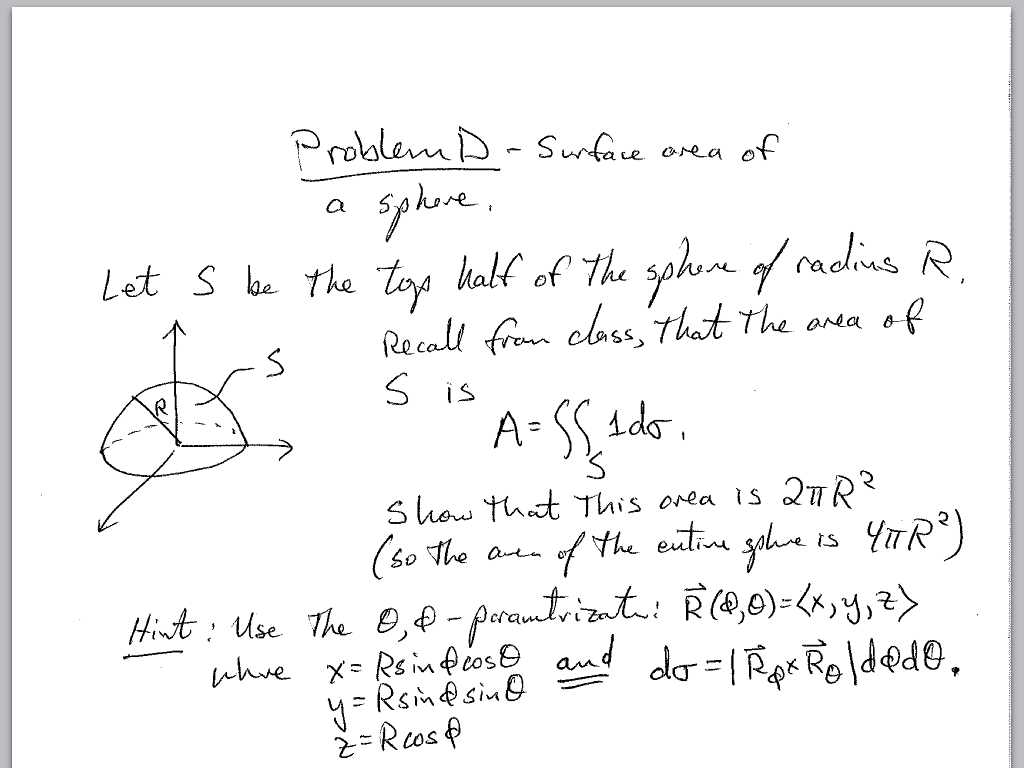 Problem D - Surface area of
a sphere.
Let S be the top half of the sphere of radius R.
Recall from class, that the area of
S is
A = ∫∫_S 1dσ.
Show that this area is 2πR²
(so the area of the entire sphere is 4πR²)
Hint: Use the θ, φ - parametrizatn: R⃗(φ,θ)=⟨x,y,z⟩
where x = Rsinφcosθ and dσ = |R⃗_φ × R⃗_θ|dφdθ.
y = Rsinφsinθ
z = Rcosφ
S
R